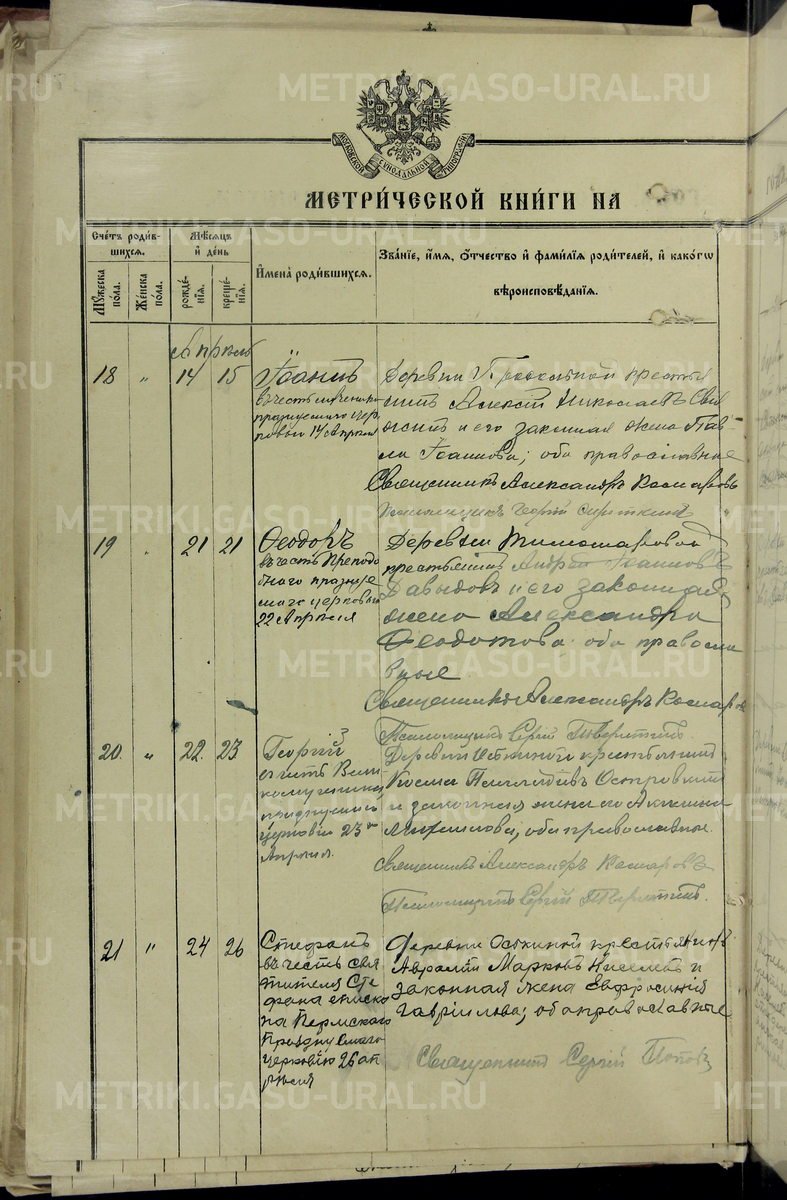 МОСКОВСКОЙ СИНОДАЛЬНОЙ ТИПОГРАФІИ
МЕТРИ́ЧЕСКОЙ КНИ́ГИ НА
Сче́тъ роди́вшихся.
Му́жеска по́ла.
Же́нска по́ла.
Мѣ́сяцъ и де́нь
рожде́нія.
креще́нія.
И҆мена̀ роди́вшихся.
Зва́ніе, и҆́мя, ѻ҆́тчество и҆ фами́лія роди́телей, и҆ како́гѡ
вѣроисповѣ́данія.
Апрѣль
18 " 14 15
Іоаннъ
въ честь мученика
празднуемаго цер
ковью 14 Апрѣля
Деревни крестья
нинъ Алексѣй Николаевъ
и его законная жена Пав
ла Іоаннова; оба православные
Священникъ Александръ Комаровъ
Псаломщикъ Георгій
19 " 21 21
Ѳеодоръ
въ честь Преподо
бнаго праздну
емаго церковью
22 Апрѣля
Деревни
крестьянинъ Андрей Іоанновъ
Давыдовъ и его законная
жена Александра
Ѳеодотова оба правосла
вные
Священникъ Александръ Комаровъ
Псаломщикъ Сергій
20. " 22. 23
Георгій
въ честь Вели
комученика
празднуемаго
церковію 23го
Апрѣля.
Деревни крестьянинъ
Косма Островскій
и законная жена его Акилина
оба православные.
Священникъ Александръ Комаровъ
Псаломщикъ Сергій
21 " 24 26
Стефанъ
въ честь свя
тителя Сте
фана еписко
па Пермскаго
Праздну емаго
церковію 26 ап
рѣля
Деревни крестьянинъ
Марковъ и
законная жена Евфросинія
Гавріилова; оба православные
Священникъ Сергій Поповъ
METRIKI.GASO-URAL.RU